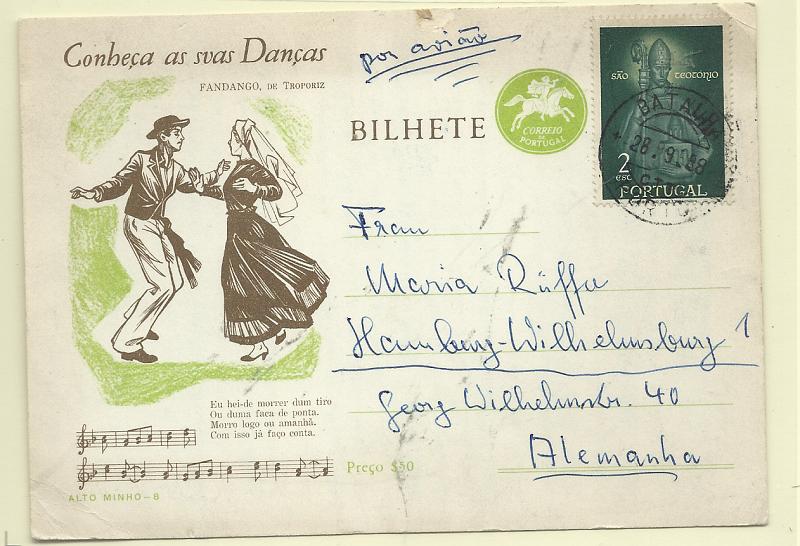 Conheça as suas Danças
FANDANGO, DE TROPORIZ
por avião
BILHETE
CORREIO
DE
PORTUGAL
SÃO TEOTONIO
2
esc
PORTUGAL
BATALHA
PORTO
Frau
Maria Rüffer
Hamburg-Wilhelmsburg 1
Georg Wilhelmstr. 40
Alemanha
Eu hei-de morrer dum tiro
Ou duma faca de ponta.
Morro logo ou amanhã.
Com isso já faço conta.
Preço $50
ALTO MINHO-8